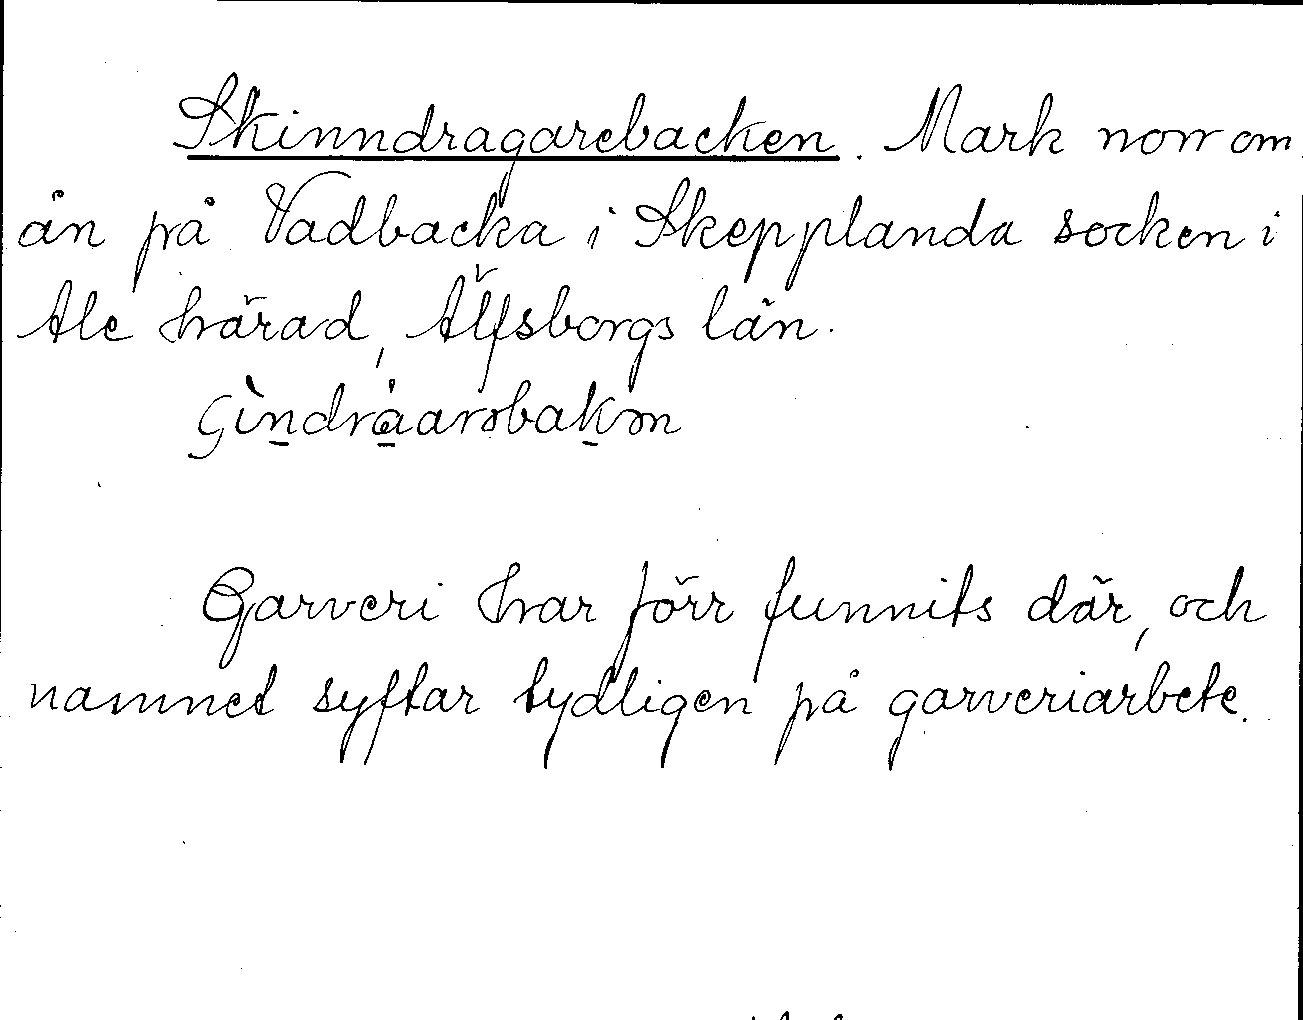 Skinndragarebacken. Mark norr om
ån på Vadbacka i Skepplanda socken i
Ale härad, Älfsborgs län.
Garveri har förr funnits där, och
namnet syftar tydligen på garveriarbete.